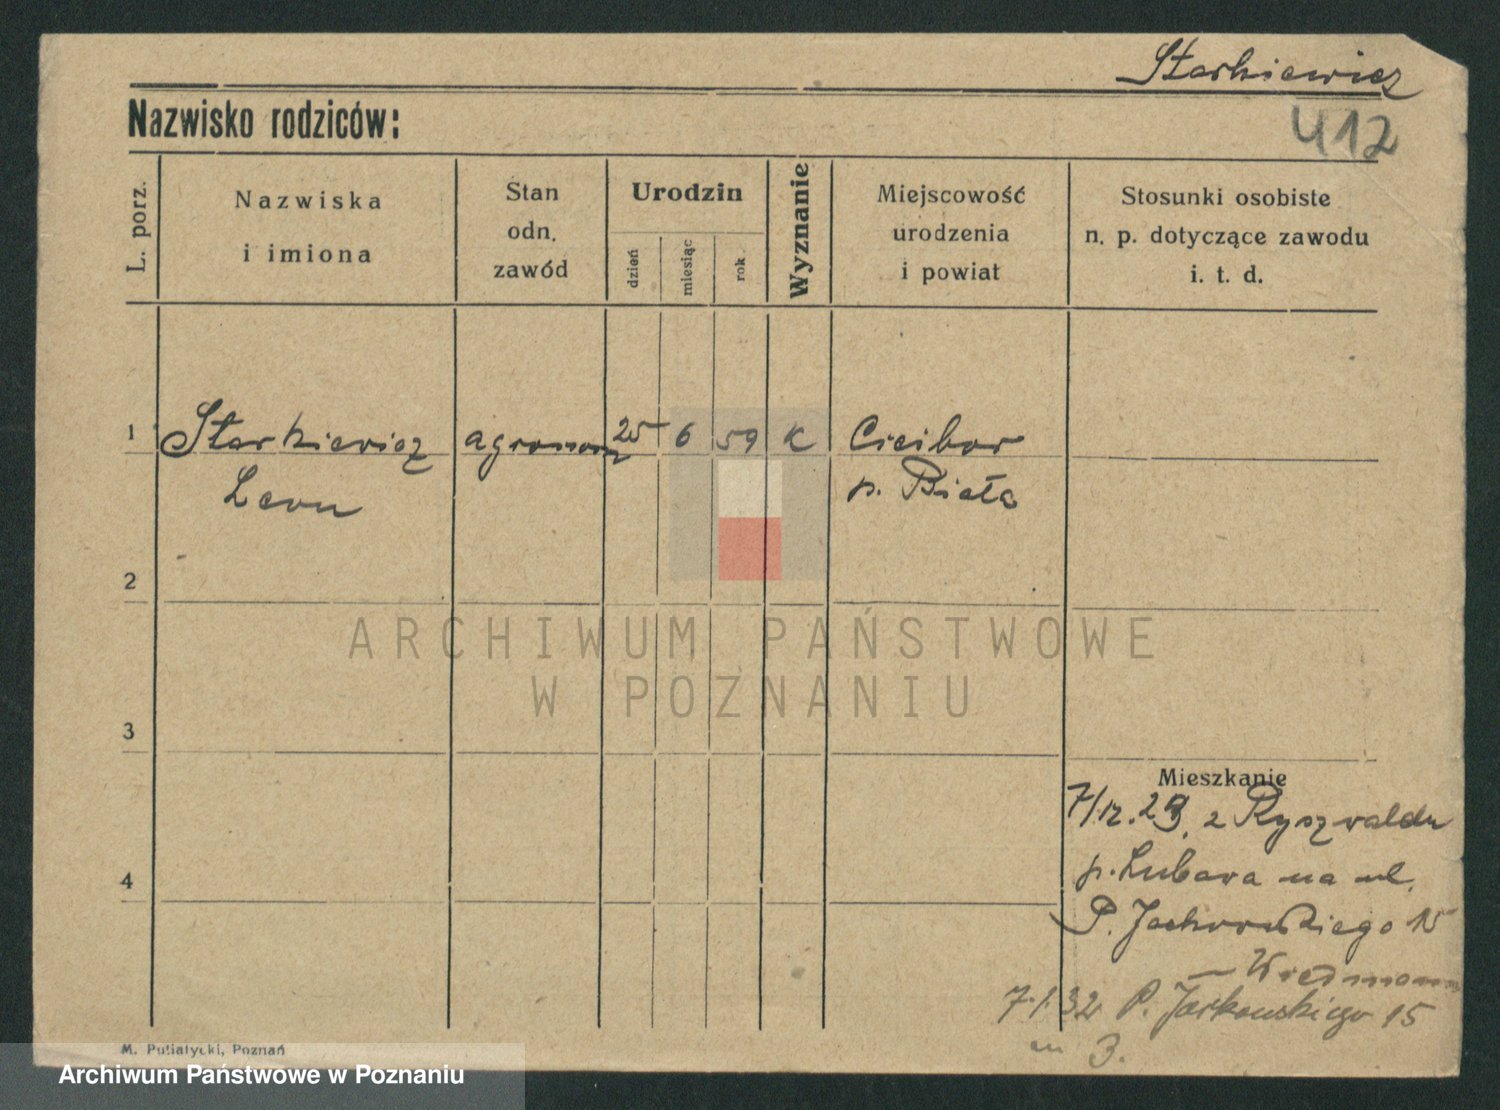 Starkiewicz
Nazwisko rodziców:
412
L. porz.
Nazwiska
i imiona
Stan
odn.
zawód
Urodzin
dzień
miesiąc
rok.
Wyznanie
Miejscowość
urodzenia
i powiat
Stosunki osobiste
n. p. dotyczące zawodu
i. t. d.
1 Starkiewicz agronom 25 6 59 K Cicibor
Leon p. Biała
2
ARCHIWUM PAŃSTWOWE
W POZNANIU
3
Mieszkanie
7/12.29. z Ryszwaldu
p. Lubawa na ul.
4
P. Jackowskiego 15
Wiedmann
7.1.32 P. Jackowskiego 15
m 3.
M. Putiatycki, Poznań
Archiwum Państwowe w Poznaniu